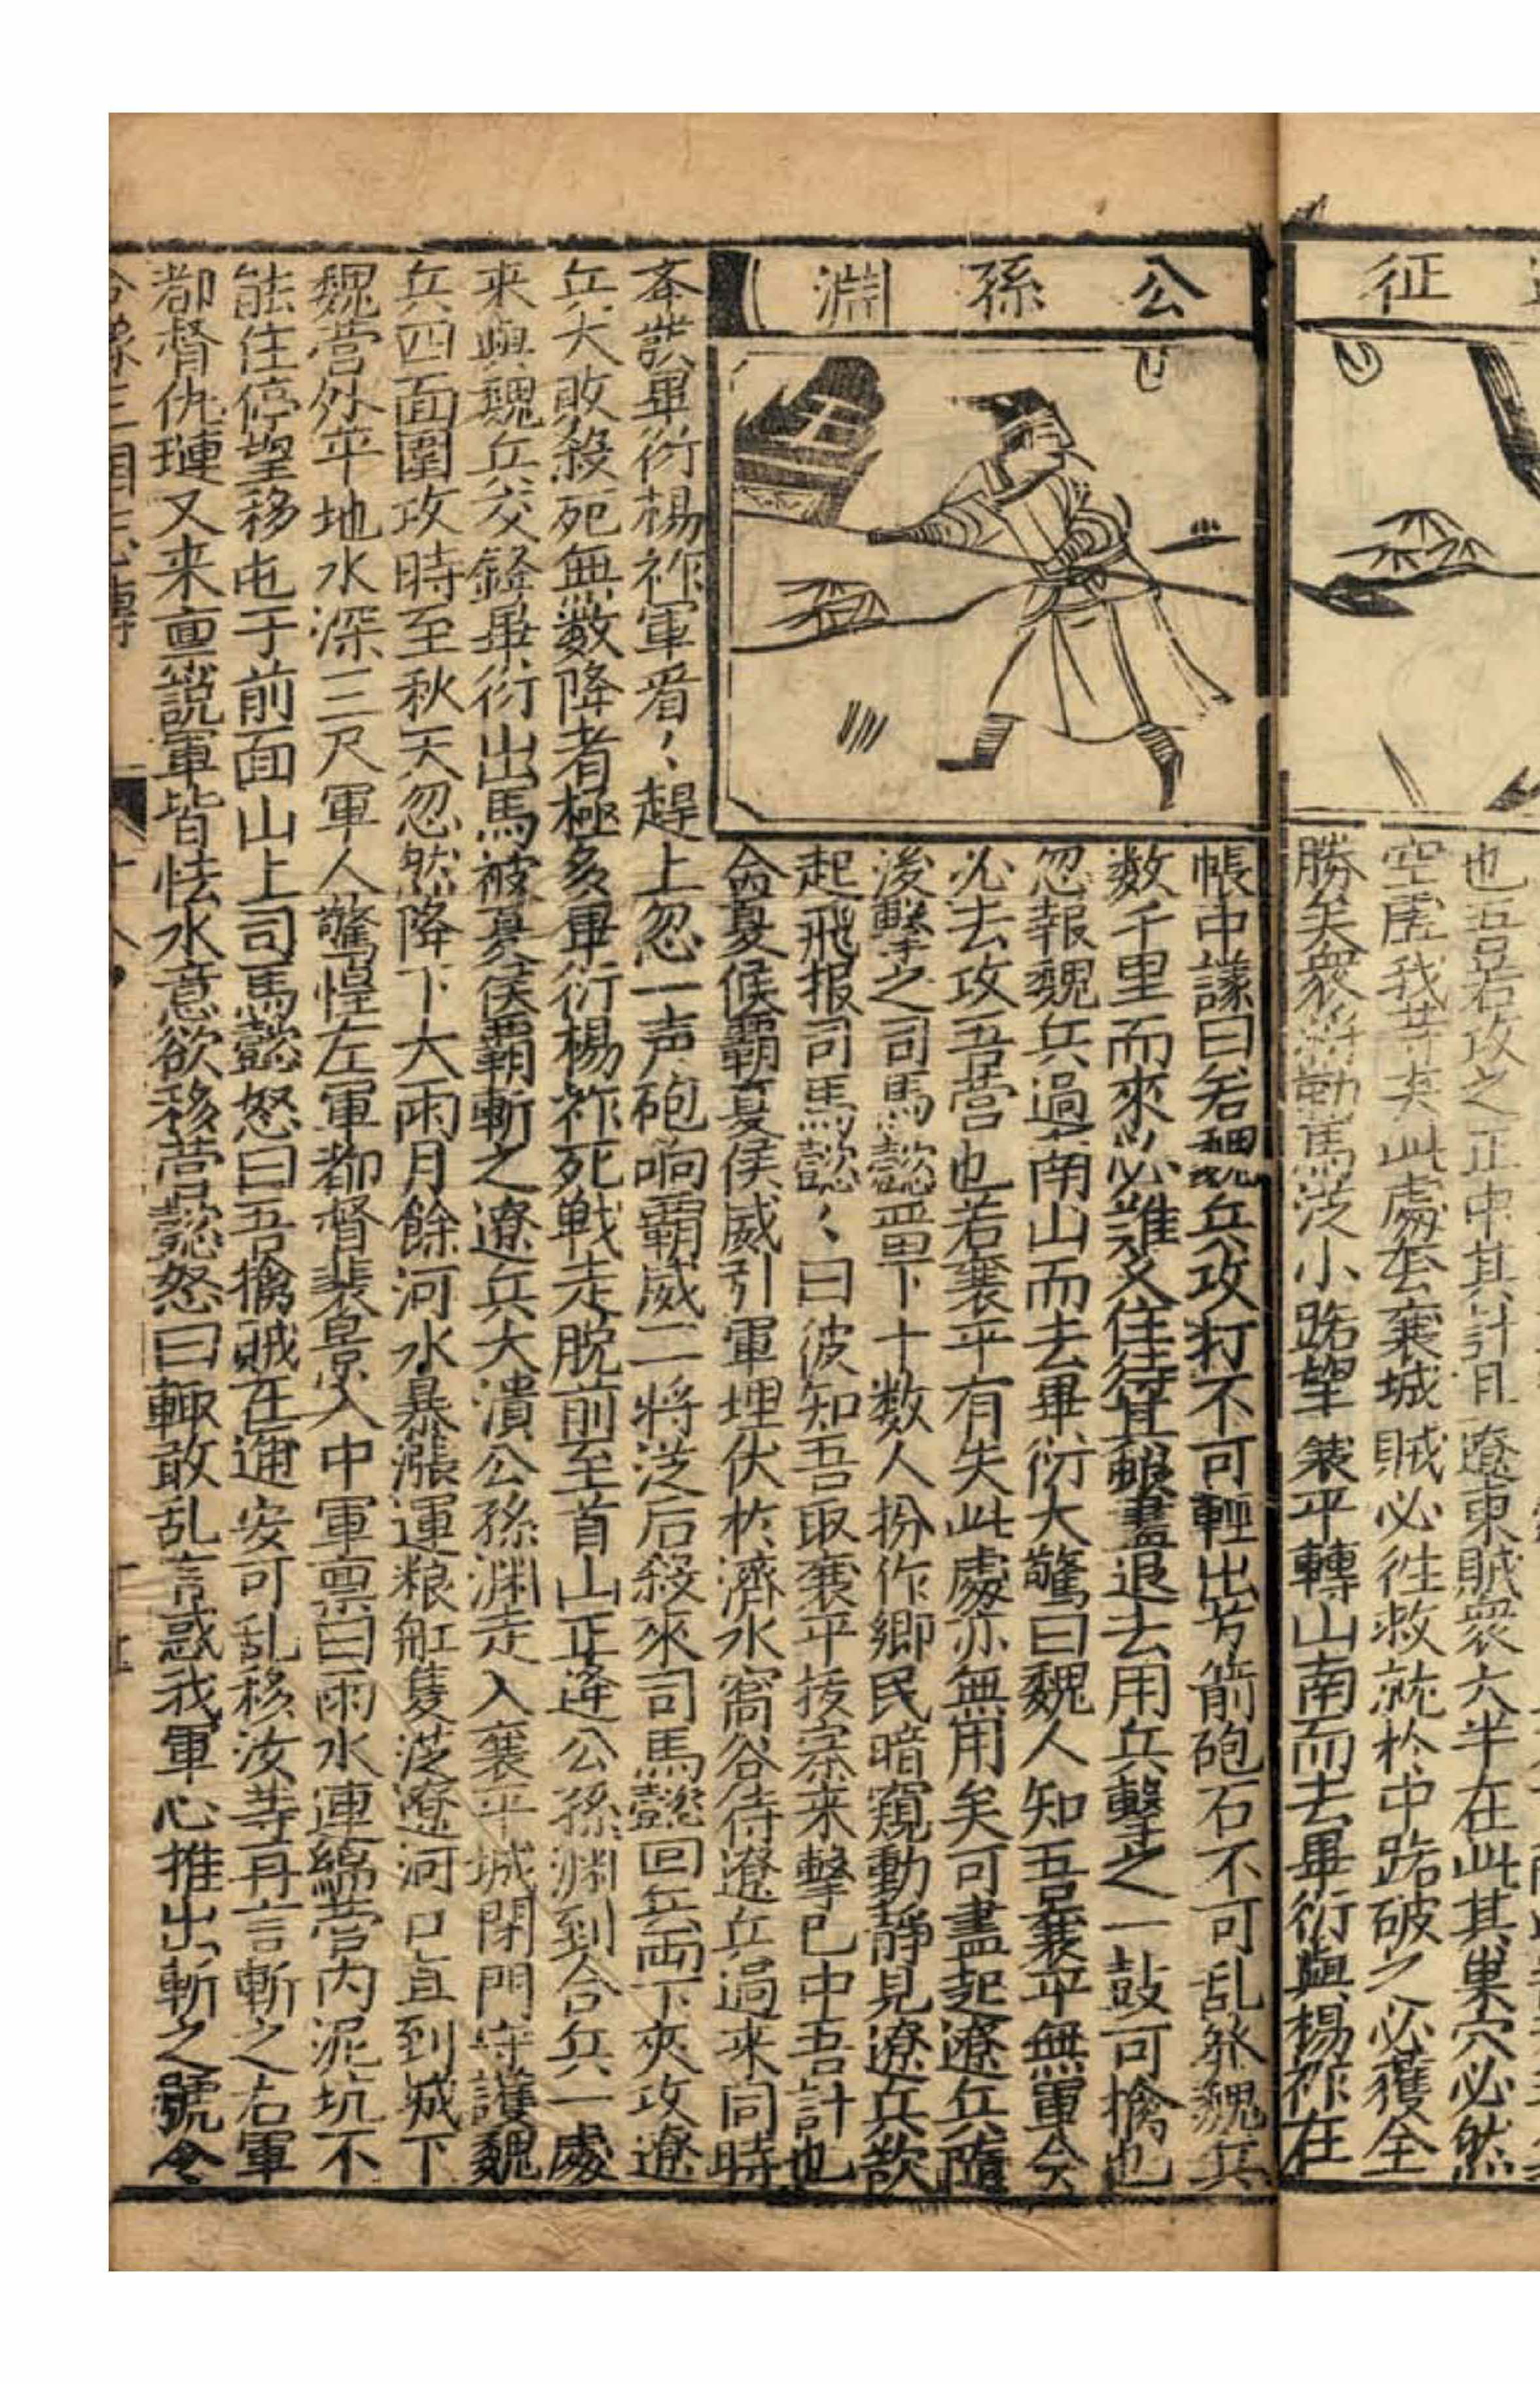 征
也吾若攻之正中其計且遼東賊衆大半在此其巢穴必然
空虛我等弃此處去襄城賊必徃救就於中路破之必獲全
勝矣衆将勒馬從小路望襄平轉山南而去畢衍與楊祚在
公孫淵
帳中議曰若魏兵攻打不可輕出方箭砲石不可乱發魏兵
数千里而來必難久住待其粮盡退去用兵擊之一鼓可擒也
忽報魏兵過南山而去畢衍大驚曰魏人知吾襄平無軍今
必去攻吾营也若襄平有失此處亦無用矣可盡起遼兵隨
後擊之司馬懿畱下十数人扮作鄉民暗窺動靜見遼兵欲
起飛报司馬懿〻曰彼知吾取襄平拔寨来擊已中吾計也
命夏候覇夏侯威引軍埋伏於濟水窩谷待遼兵過来同時
夲誘畢衍楊祚軍看〻趕上忽一声砲响覇威二将從后殺來司馬懿回兵両下夾攻遼
兵大敗殺死無数降者極多畢衍楊祚死戦走脫前至首山正逢公孫淵到合兵一處
来與魏兵交鋒畢衍出馬被夏侯覇斬之遼兵大潰公孫淵走入襄平城閉門守護魏
兵四面圍攻時至秋天忽然降下大雨月餘河水暴漲運粮舡隻從遼河口直到城下
魏营外平地水深三尺軍人驚惶左軍都督裴景入中軍禀曰雨水連綿营内泥坑不
能住停望移屯于前面山上司馬懿怒曰吾擒賊在迩安可乱移汝等再言斬之右軍
都督仇璉又来禀說軍皆怯水意欲移营懿怒曰輙敢乱言惑我軍心推出斬之號令
三国志傳